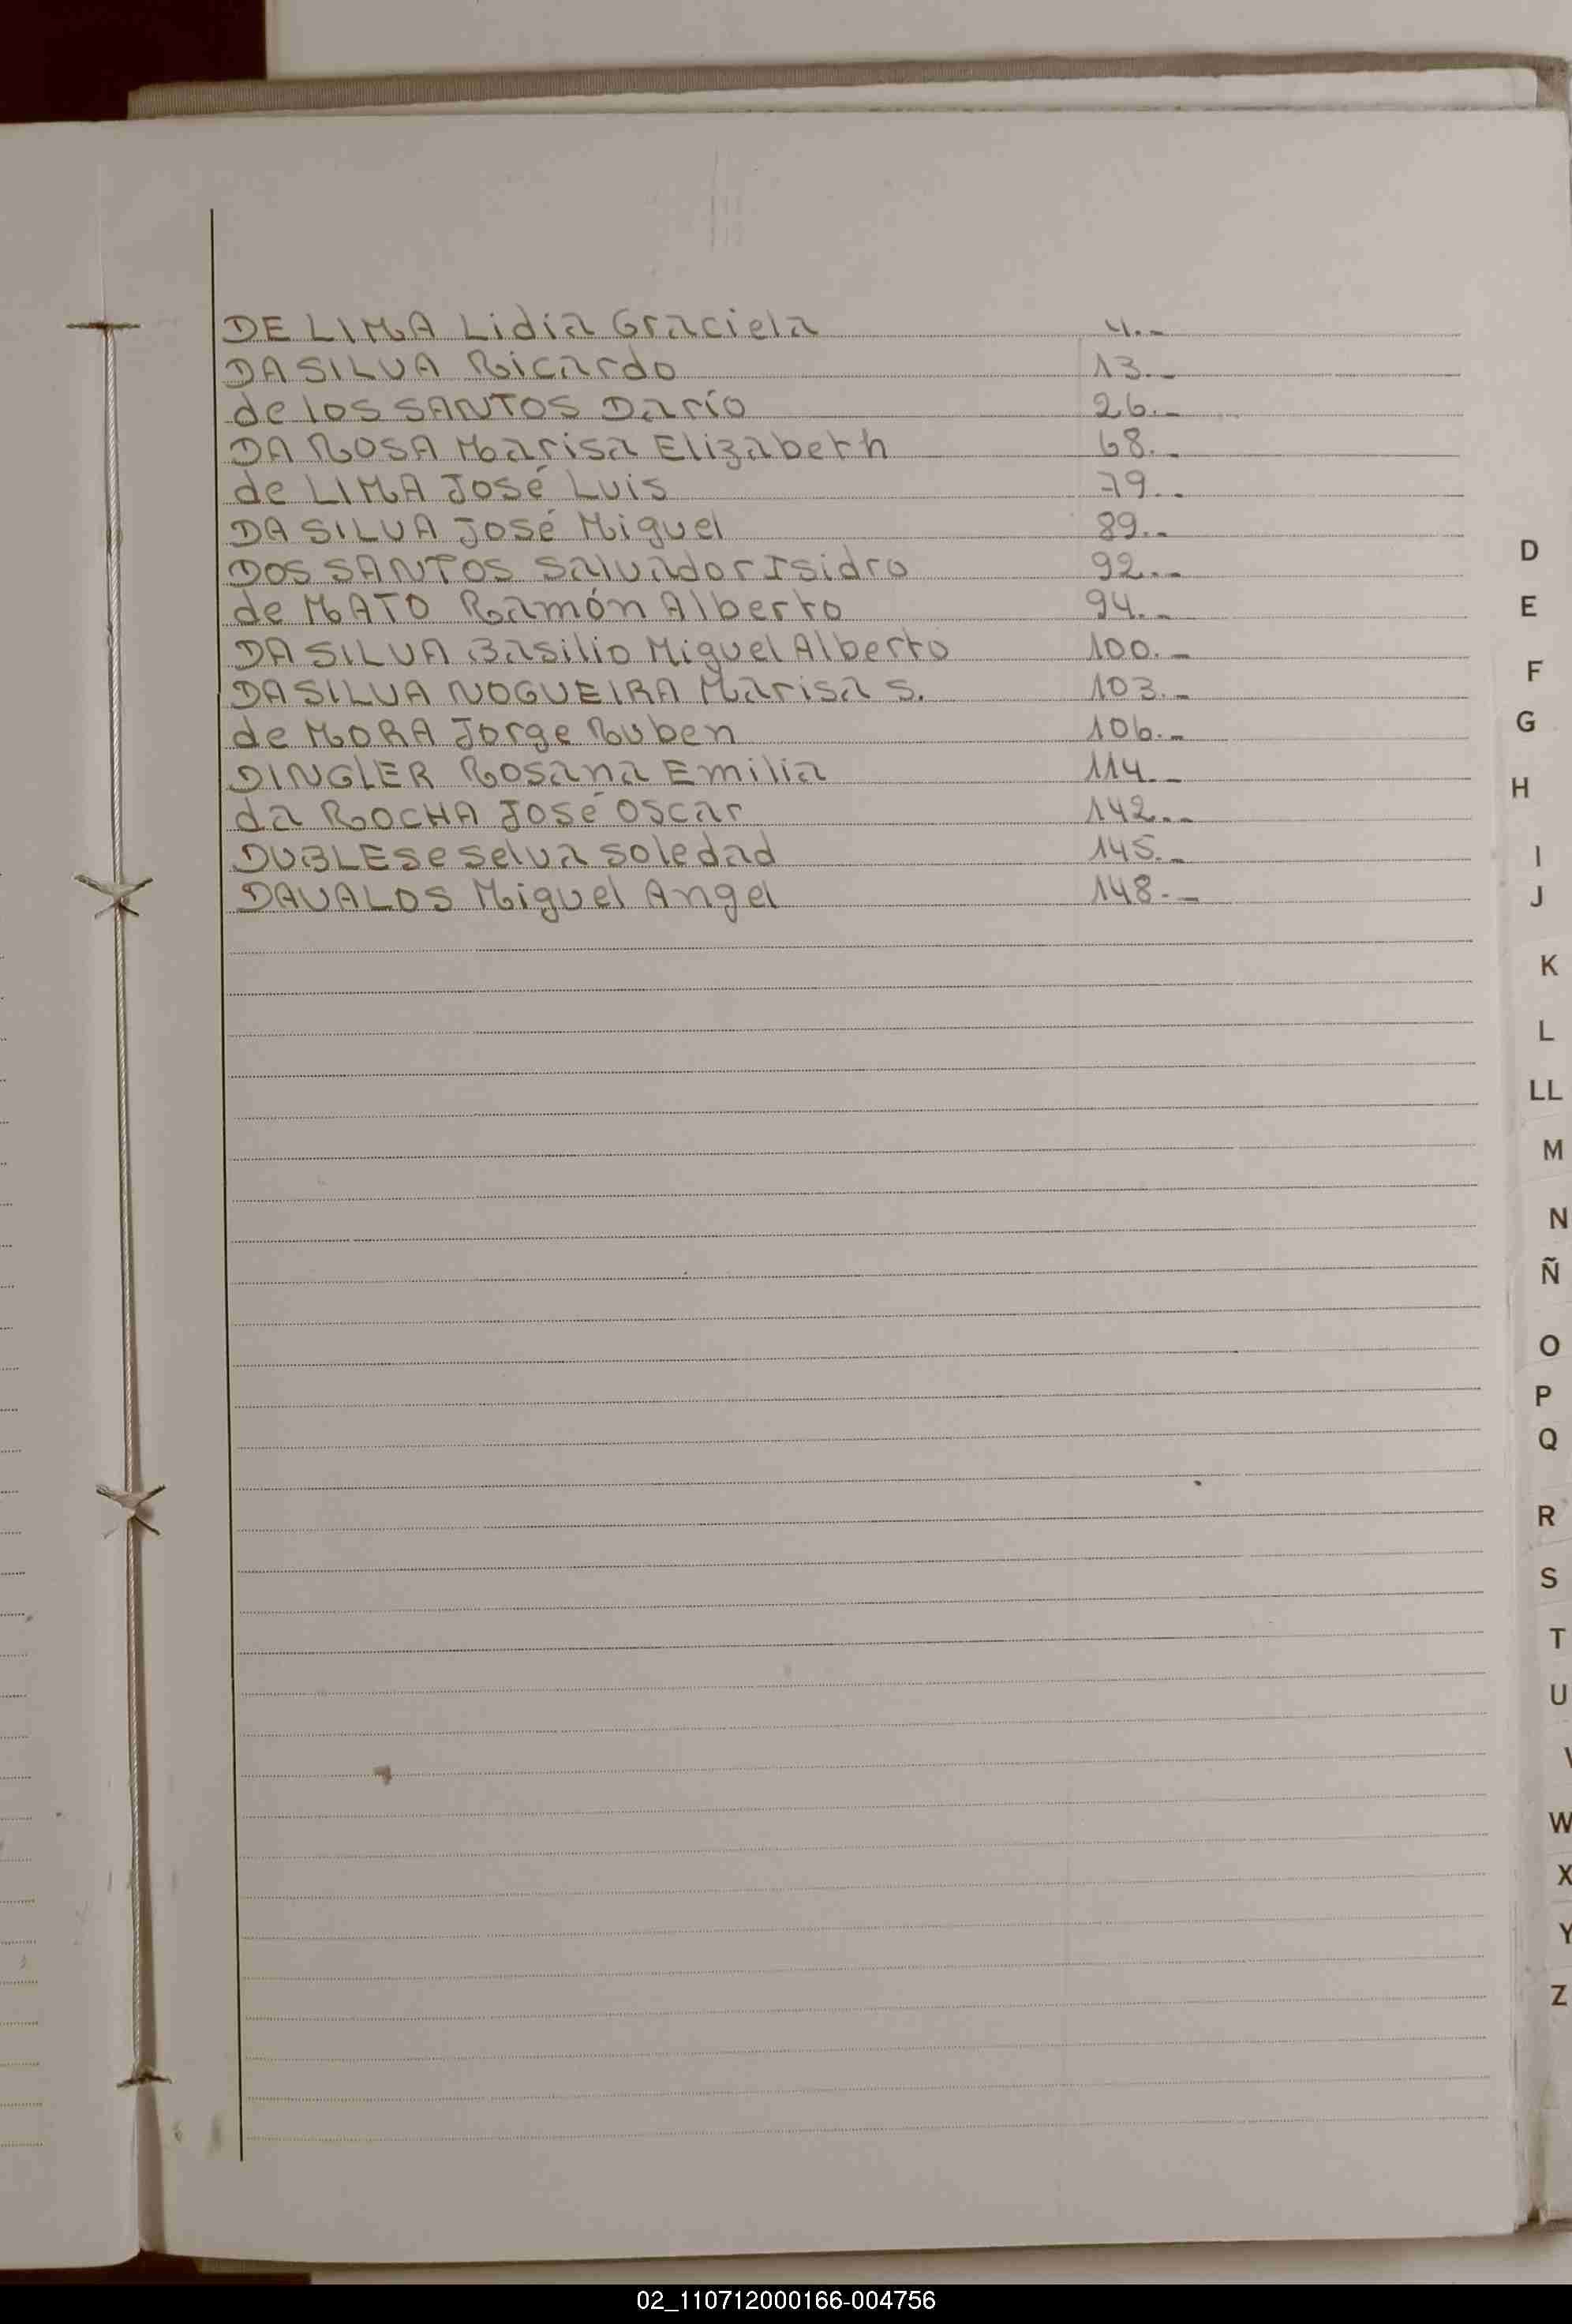 DE LIMA Lidia Graciela 4.-
DA SILVA Ricardo 13.-
de los SANTOS Darío 26.-
DA ROSA Marisa Elizabeth 68.-
de LIMA José Luis 79.-
DA SILVA José Miguel 89.-
DOS SANTOS Salvador Isidro 92.-
de MATO Ramón Alberto 94.-
DA SILVA Basilio Miguel Alberto 100.-
DA SILVA NOGUEIRA Marisa S. 103.-
de MORA Jorge Ruben 106.-
DINGLER Rosana Emilia 114.-
da ROCHA José Oscar 142.-
DUBLESe Selva Soledad 145.-
DAVALOS Miguel Angel 148.-
D
E
F
G
H
I
J
K
L
LL
M
N
Ñ
O
P
Q
R
S
T
U
W
X
Y
Z
02_110712000166-004756